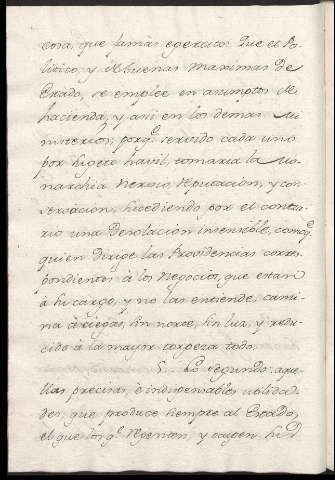 cosa, que jamàs egercito: Que el Po-
litico, y de buenas Maximas de
Estado, se emplèe en asumptos de
hacienda, y asi en los demas Mi-
nisterios; porq.e servido cada uno
por sugeto havil, tomaria la Mo-
narchia Nervio, Reputacion, y con-
servacion, sucediendo por el contra-
rio una Desolacion insensible, como q.e
quien dirige las Providencias corres-
pondientes à los Negocios, que estan
à su cargo, y no las entiende, cami-
na à ciegas, sin norte, sin luz, y redu-
cido à la mayor torpeza todo.
5. Lo segundo: aque-
llas precisas, è indispensables utilida-
des, que produce siempre al Estado,
el que los q.e Regentan, y ocupen su